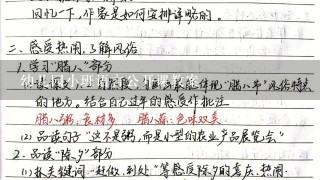 回忆一下,作家是如何安排详略的。
二、感受热闹,了解风俗
1. 学习“腊八”部分
的地方。结合自己过年的感受作批注
腊八粥:食材多 腊八蒜:色味双美
(2) 品读句子“这不是粥,而是小型的农业产品展览会”
2. 品读“除夕”部分
(1) 抓关键词“赶做、到处”等感受除夕的喜庆、热闹。